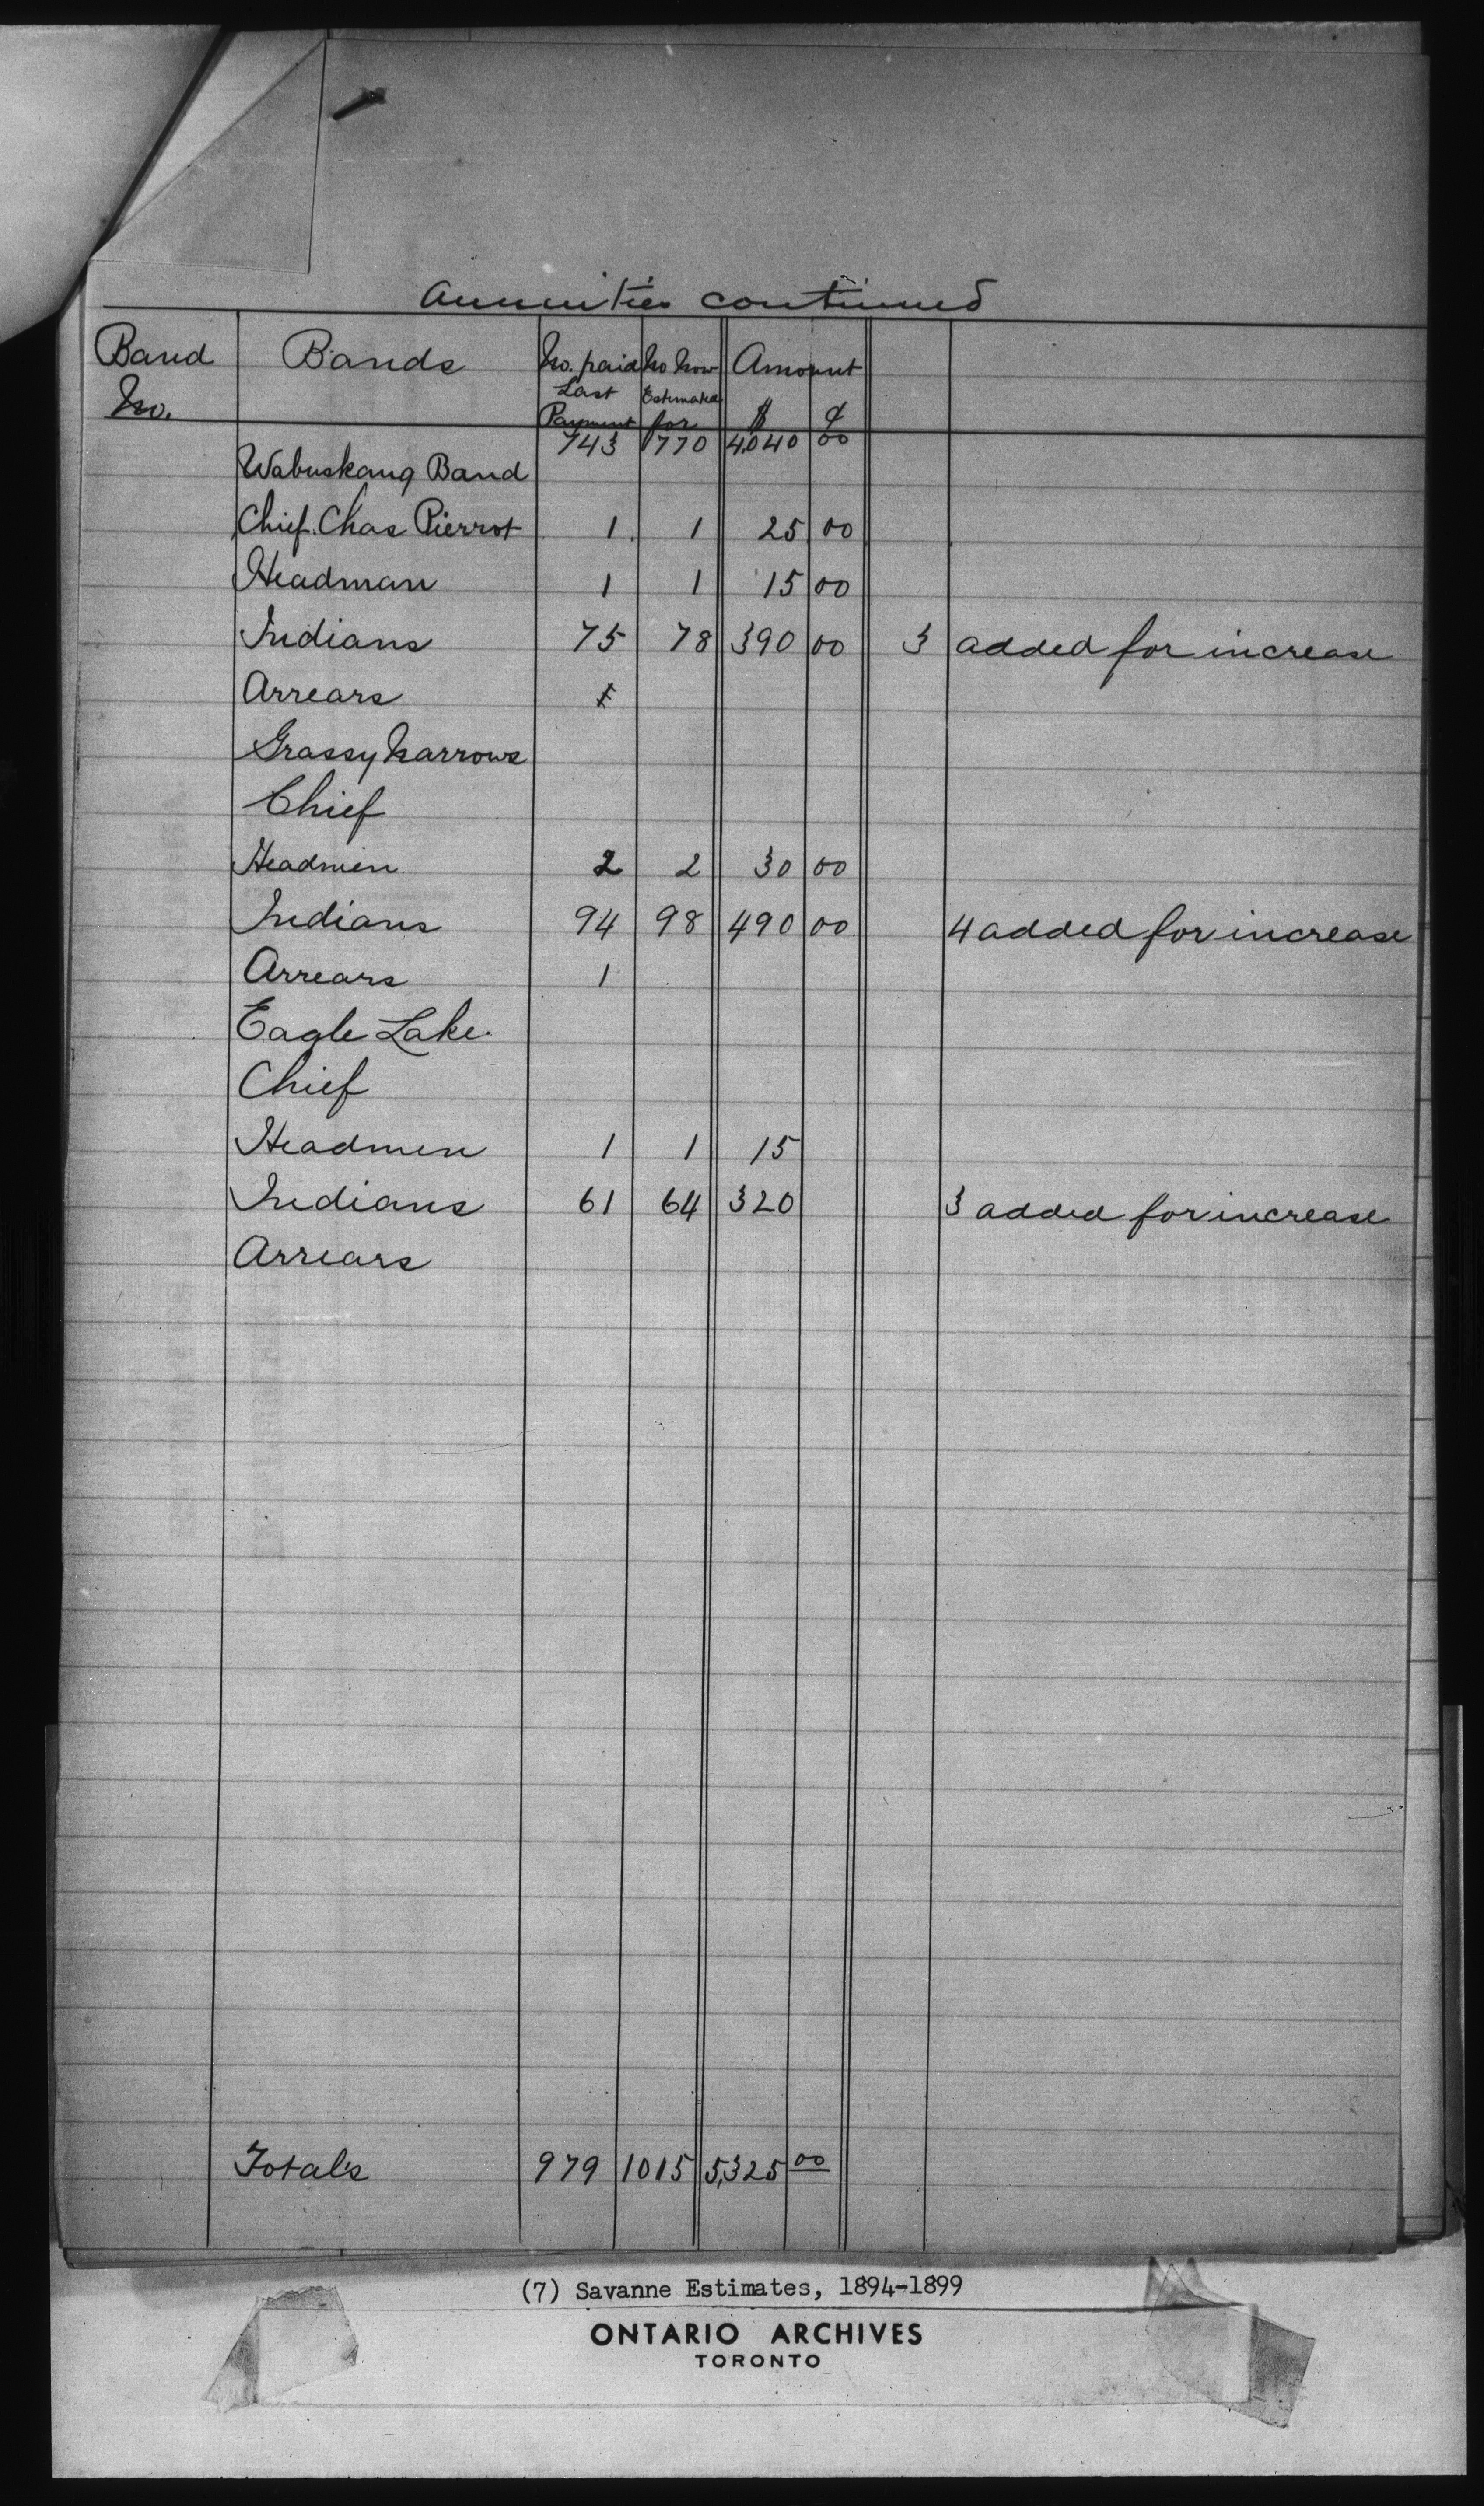 Annuities continued
Band No. Bands No. paid Last Payment No Now Estimated for Amount $ ¢
743 770 4040 00
Wabuskang Band
Chief. Chas Pierrot 1. 1 25 00
Headman 1 1 15 00
Indians 75 78 390 00 3 added for increase
Arrears
Grassy Narrows
Chief
Headmen 2 2 30 00
Indians 94 98 490 00 4 added for increase
Arrears 1
Eagle Lake.
Chief
Headmen 1 1 15
Indians 61 64 320 3 added for increase
Arrears
Totals 979 1015 5,325 00
(7) Savanne Estimates, 1894-1899
ONTARIO ARCHIVES
TORONTO